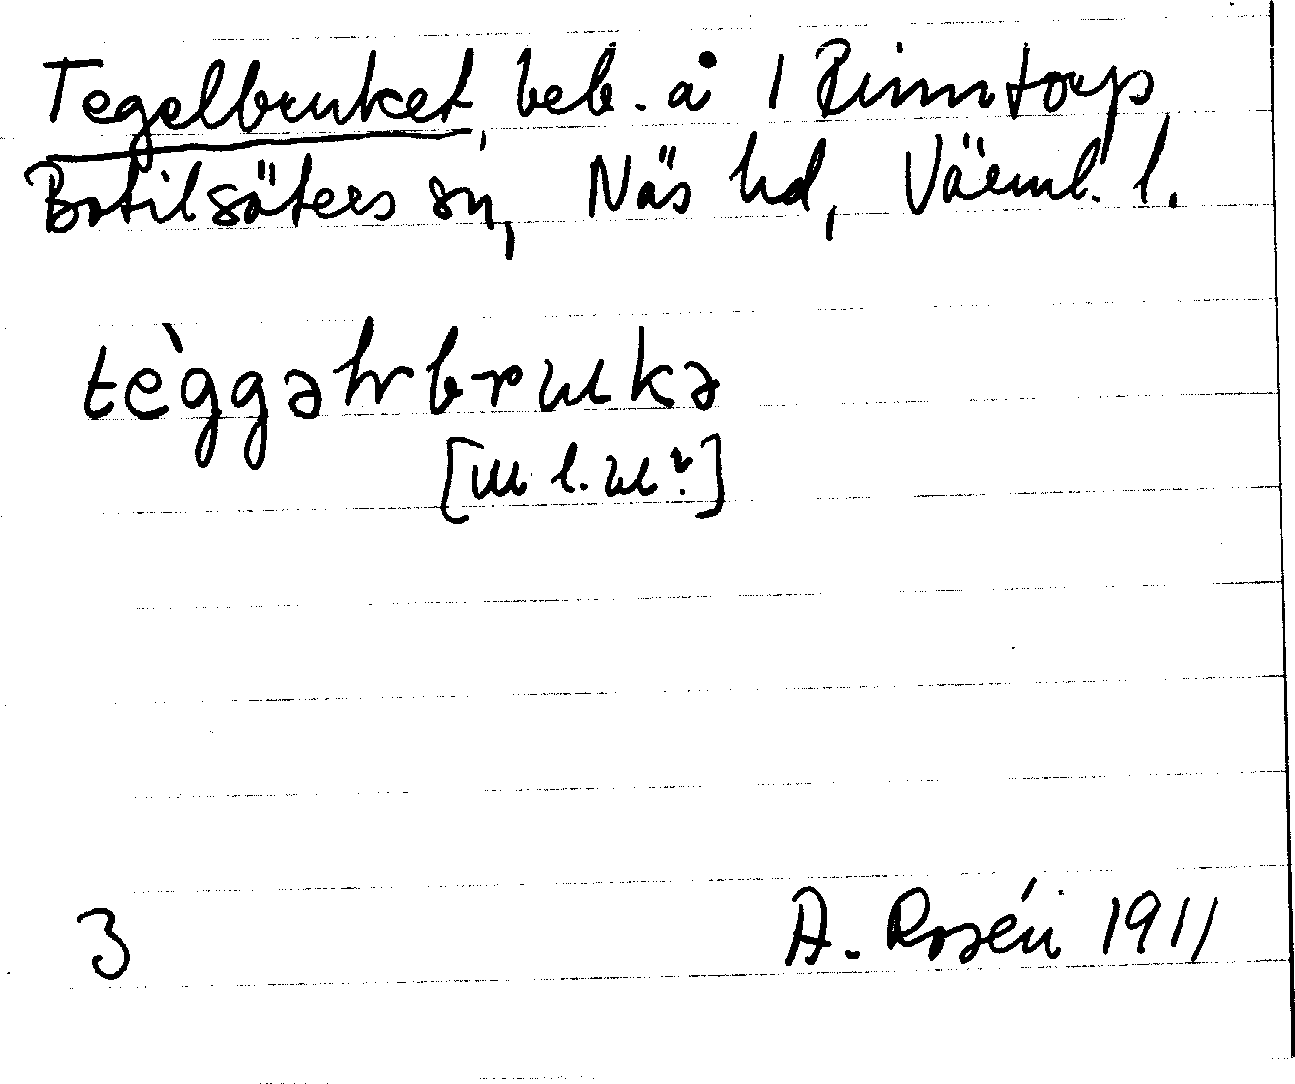 Tegelbruket, beb. å 1 Rinntorp
Botilsäters sn, Näs hd, Värml. l.
tèggəhrbrukə
[u l. u?]
3 A. Rosén 1911